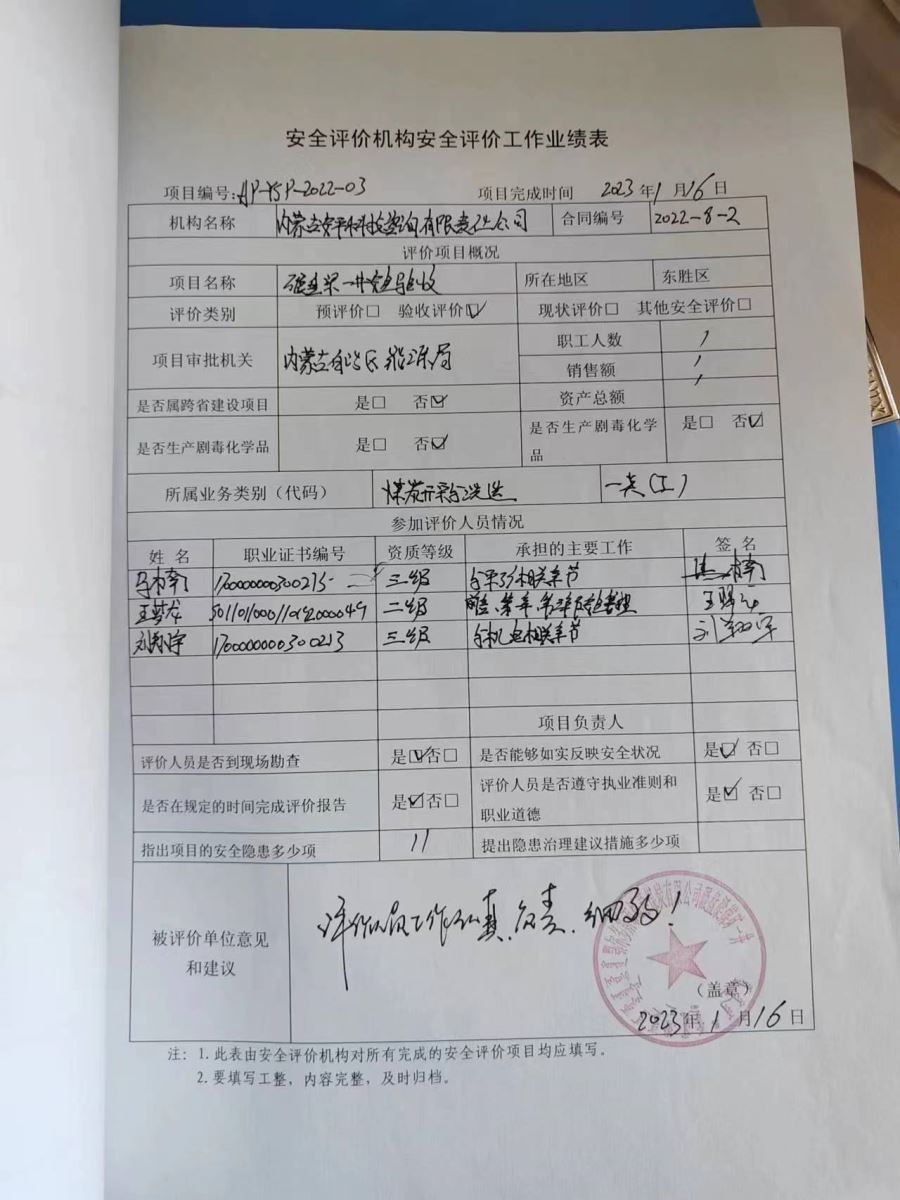 安全评价机构安全评价工作业绩表
项目编号:AP-YSP-2022-03 项目完成时间 2023年1月16日
机构名称 内蒙古安平科技咨询有限责任公司 合同编号 2022-8-2
评价项目概况
项目名称 一井 验收 所在地区 东胜区
评价类别 预评价□ 验收评价☑ 现状评价□ 其他安全评价□
项目审批机关 内蒙古自治区能源局 职工人数 /
销售额 /
是否属跨省建设项目 是□ 否☑ 资产总额 /
是否生产剧毒化学品 是□ 否☑ 是否生产剧毒化学品 是□ 否☑
所属业务类别（代码） 煤炭开采和洗选 一类(1)
参加评价人员情况
姓名 职业证书编号 资质等级 承担的主要工作 签名
三级 相关章节
二级
刘翔宇 1700000000300213 三级 与机电相关章节 刘翔宇
项目负责人
评价人员是否到现场勘查 是☑否□ 是否能够如实反映安全状况 是☑ 否□
是否在规定的时间完成评价报告 是☑否□ 评价人员是否遵守执业准则和职业道德 是☑ 否□
指出项目的安全隐患多少项 11 提出隐患治理建议措施多少项
被评价单位意见和建议 评价人员工作认真、负责、细致！
（盖章）
2023年1月16日
注：1.此表由安全评价机构对所有完成的安全评价项目均应填写。
2.要填写工整，内容完整，及时归档。